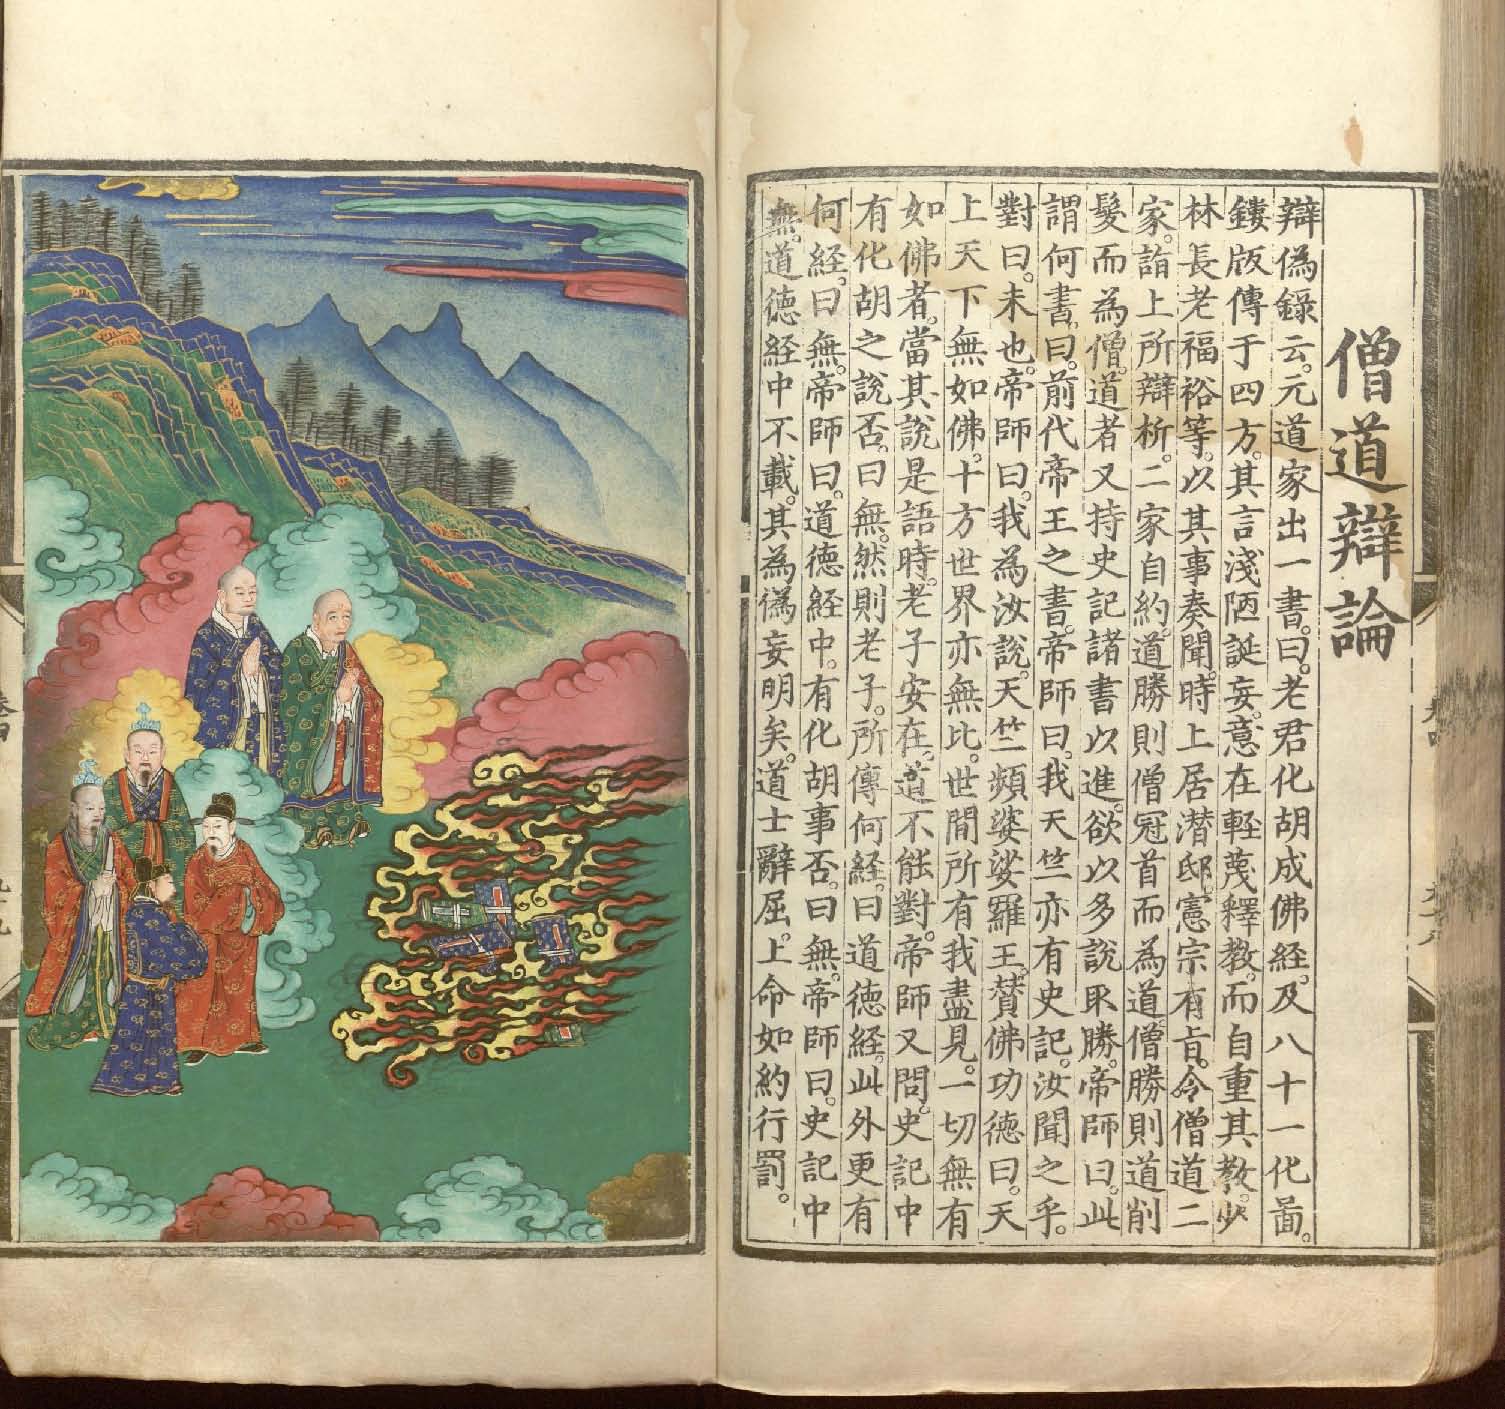 僧道辯論
辯偽錄云。元道家出一書。曰。老君化胡成佛經。及八十一化啚。
鏤版傳于四方。其言淺陋誕妄。意在輕蔑釋教。而自重其教。少
林長老福裕等。以其事奏聞。時上居潛邸。憲宗有旨。令僧道二
家。詣上所辯析。二家自約。道勝則僧冠首而為道。僧勝則道削
髮而為僧。道者又持史記諸書以進。欲以多說取勝。帝師曰。此
謂何書。曰。前代帝王之書。帝師曰。我天竺亦有史記。汝聞之乎。
對曰。未也。帝師曰。我為汝說。天竺頻婆娑羅王。贊佛功德曰。天
上天下無如佛。十方世界亦無比。世間所有我盡見。一切無有
如佛者。當其說是語時。老子安在。道不能對。帝師又問。史記中
有化胡之說否。曰無。然則老子。所傳何經。曰道德經。此外更有
何經。曰無。帝師曰。道德經中。有化胡事否。曰無。帝師曰。史記中
無。道德經中不載。其為偽妄明矣。道士辭屈。上命如約行罰。